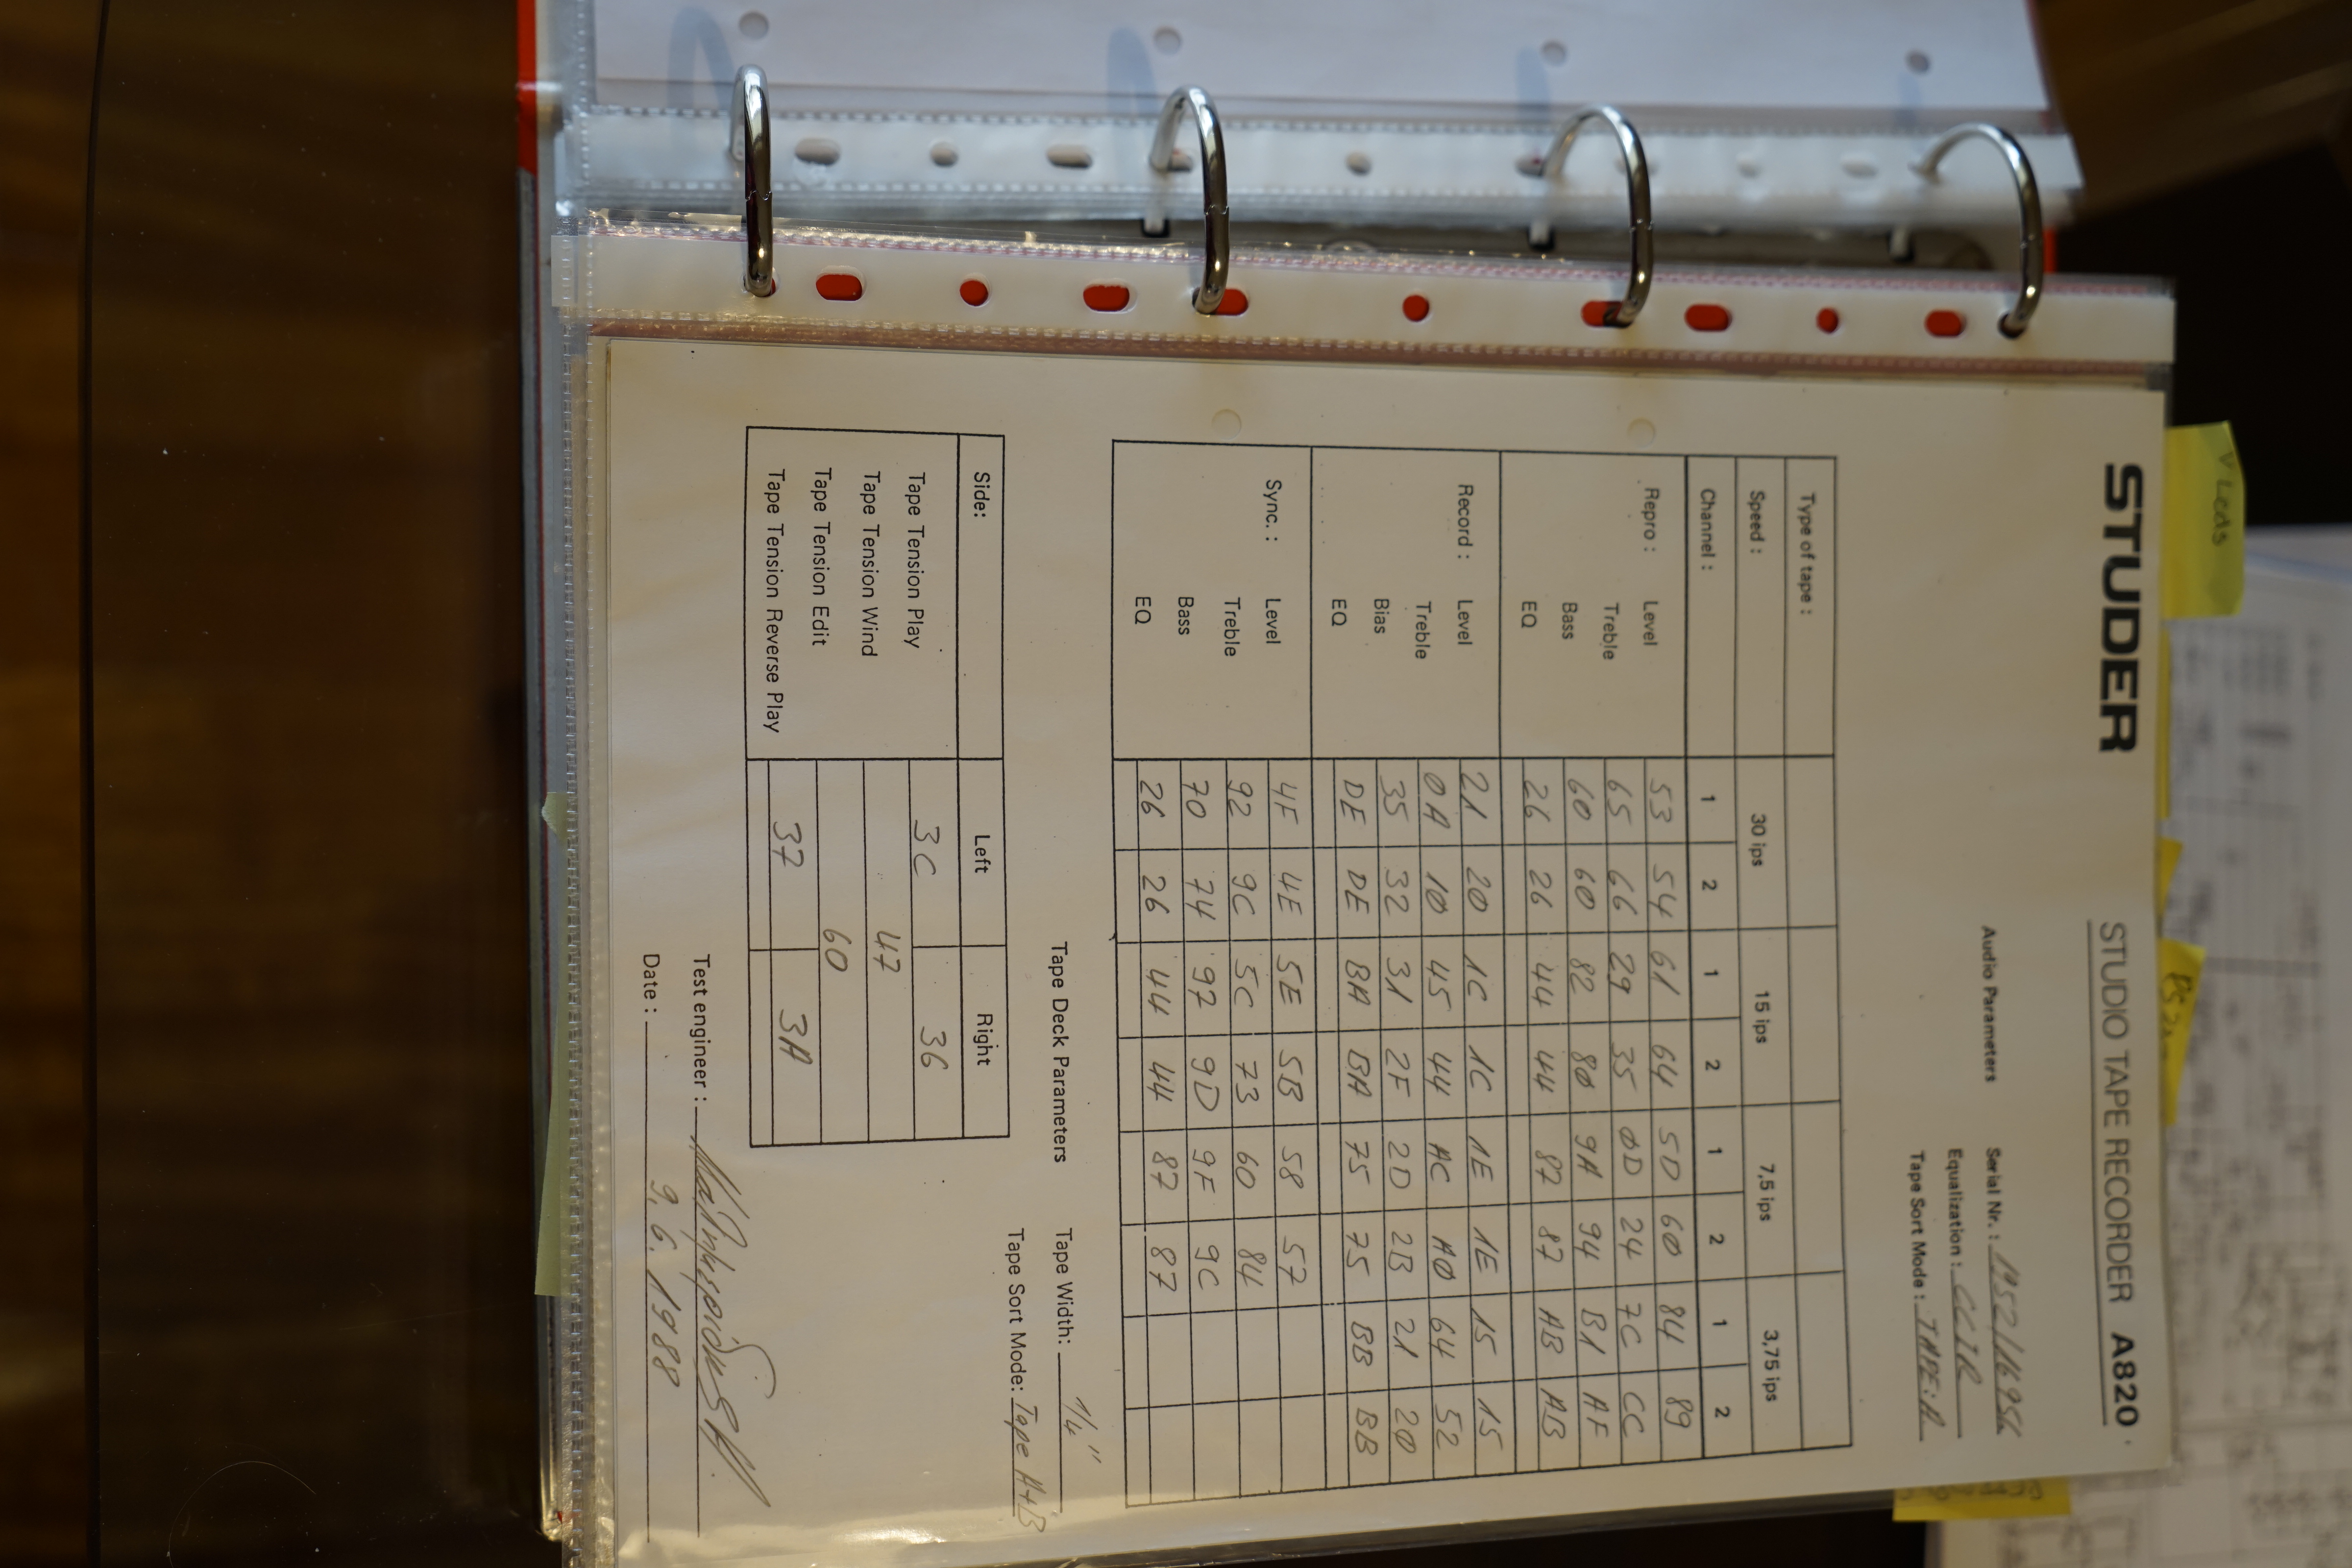 STUDER STUDIO TAPE RECORDER A820
Audio Parameters Serial Nr. : 1952/
Equalization : CCIR
Tape Sort Mode : TAPE:A
Type of tape :
Speed : 30 ips 15 ips 7,5 ips 3,75 ips
Channel : 1 2 1 2 1 2 1 2
Repro : Level 53 54 61 64 5D 60 84 89
Treble 65 66 29 35 0D 24 7C CC
Bass 60 60 82 80 9A 94 B1 AF
EQ 26 26 44 44 87 87 AB AB
Record : Level 21 20 1C 1C 1E 1E 15 15
Treble 0A 10 45 44 AC A0 64 52
Bias 35 32 31 2F 2D 2B 21 20
EQ DE DE BA BA 75 75 BB BB
Sync. : Level 4F 4E 5E 5B 58 57
Treble 92 9C 5C 73 60 84
Bass 70 74 97 9D 9F 9C
EQ 26 26 44 44 87 87
Tape Deck Parameters Tape Width: 1/4"
Tape Sort Mode: Tape A+B
Side: Left Right
Tape Tension Play 3C 36
Tape Tension Wind 47
Tape Tension Edit 60
Tape Tension Reverse Play 37 3A
Test engineer :
Date : 9.6.1988
V Leds